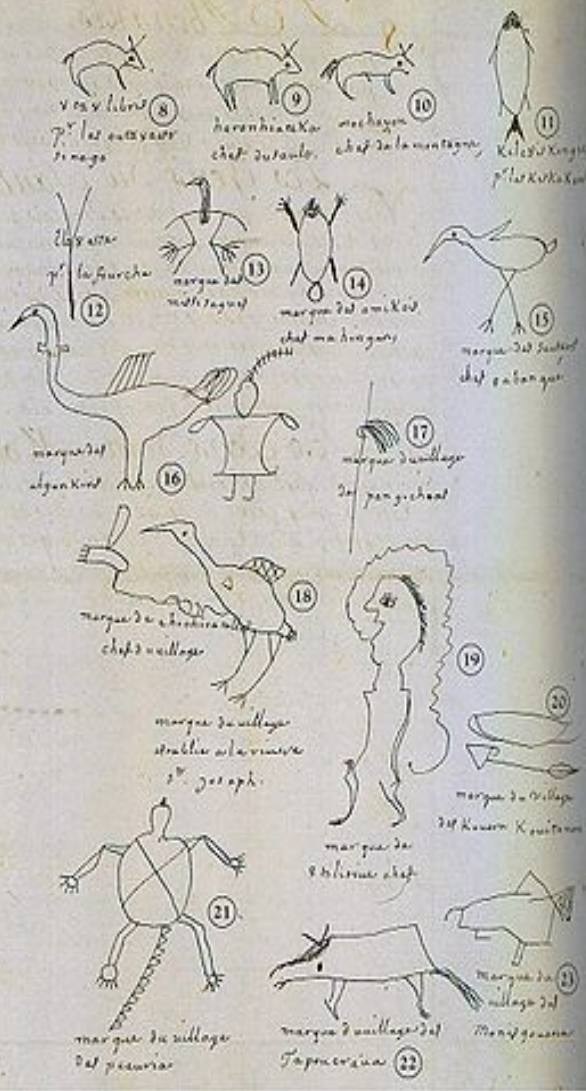 8
pr les outavois
sinago
9
haronhiateka
chef du saulx.
10
mechayon
chef de la montagne,
11
Kileouiskingie
pr les KisKaKons
12
pr la fourche
13
marque des
missisagues
14
marque des amikois
chef mahingan,
15
marque des sauteurs
chef 8abangue
16
marque des
algonkins
17
marque du village
des pangicheas
18
marque de chichicatalo
chef du village
marque du village
etablie a la riviere
St. Joseph.
19
marque de
chef
20
marque du village
des Kouera Kouitanon
21
marque du village
des peouria
22
marque du village des
Tapoueroua
23
marque du
village des
Monisgouena